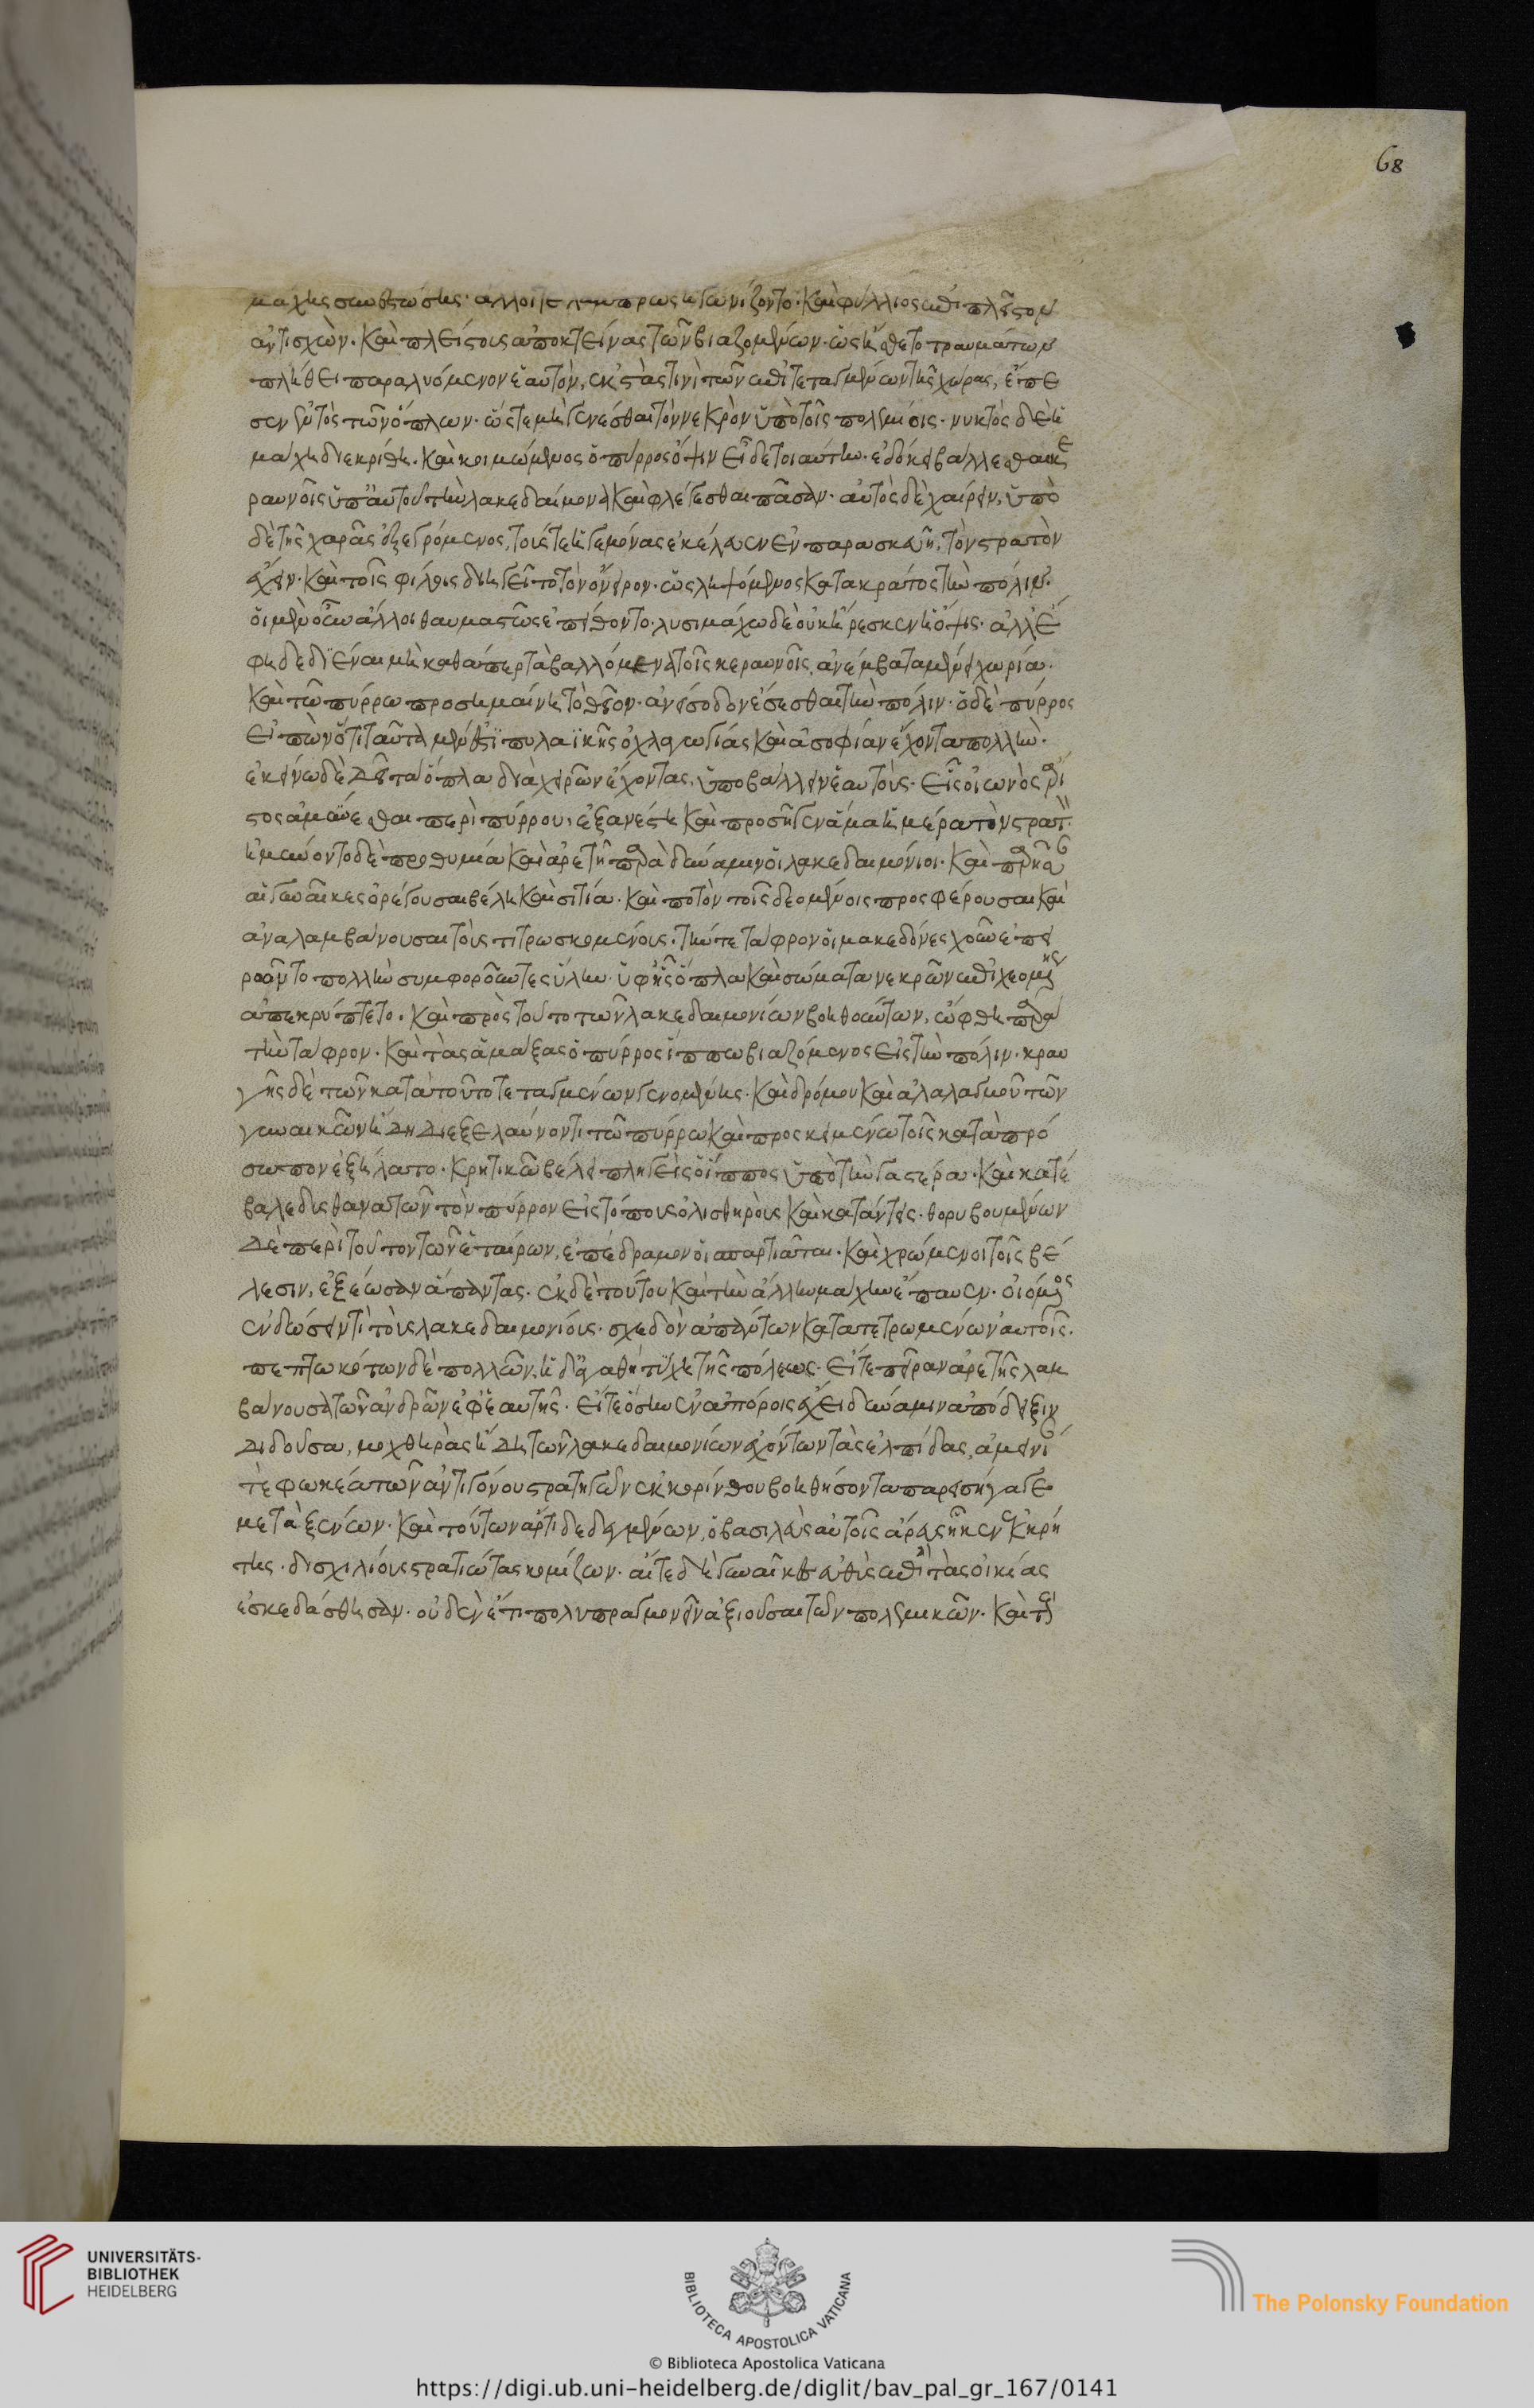 68
μάχης συνεστώσης· άλλοι τε λαμπρως ηγωνίζοντο· καὶ φύλλιος ἐπι πλεῖστον
ἀντισχὼν. καὶ πλείστους ἀποκτείνας τῶν βιαζομένων. ὡς ἤσθετο τραυμάτων
πλήθει παραλυόμενον ἑαυτὸν, ἐκστὰς τινὶ τῶν ἐπιτεταγμένων τῆς χώρας, ἔπε
σεν ἐντὸς τῶν ὅπλων. ὥστε μὴ γενέσθαι τὸν νεκρὸν ὑπὸ τοῖς πολεμίοις. νυκτὸς δὲ ἡ
μάχη διεκρίθη. καὶ κοιμώμενος ὁ πύρρος ὄψιν εἶδε τοιαύτην. ἐδόκει βάλλεσθαι κε
ραυνοῖς ὑπ' αὐτοῦ τὴν λακεδαίμονα καὶ φλέγεσθαι πᾶσαν. αὐτὸς δὲ χαίρειν, ὑπὸ
δὲ τῆς χαρᾶς ἐξεγρόμενος, τούς τε ἡγεμόνας ἐκέλευεν ἐν παρασκευῆ, τὸν στρατὸν
ἔχειν. καὶ τοῖς φίλοις διηγεῖτο τὸν ὄνειρον. ὡς ληψόμενος κατακράτος τὴν πόλιν.
οἱ μὲν οὖν ἄλλοι θαυμαστῶς ἐπείθοντο. λυσιμάχω δὲ οὐκ ἤρεσκεν ἡ ὄψις. ἀλλ' ἔ
φη δεδϊέναι μὴ καθάπερ τὰ βαλλόμενα τοῖς κεραυνοῖς ἀνέμβατα μένει χωρία.
καὶ τῶ πύρρω προσημαίνη τὸ θεῖον. ἀνείσοδον ἔσεσθαι τὴν πόλιν. ὁ δὲ πύρρος
εἰπὼν ὅτι ταῦτα μέν ἐστϊ πυλαϊκῆς ὀχλαγωδίας καὶ ἀσοφίαν ἔχοντα πολλὴν.
ἐκείνω δὲ δεῖ τὰ ὅπλα διὰ χειρῶν ἔχοντας, ὑποβάλλειν ἑαυτοὺς. εἷς οἰωνὸς ἄρι
στος ἀμύνεσθαι περὶ πύρρου, ἐξανέστη καὶ προσῆγεν ἅμα ἡμέρα τὸν στρατ
ἠμύνοντο δὲ προθυμία καὶ ἀρετῆ παρὰ δύναμιν οἱ λακεδαιμόνιοι. καὶ παρῆσαν
αἱ γυναῖκες ὀρέγουσαι βέλη καὶ σιτία. καὶ ποτὸν τοῖς δεομένοις προσφέρουσαι καὶ
ἀναλαμβάνουσαι τοὺς τιτρωσκομένους. τήν τε τάφρον οἱ μακεδόνες χοῦν ἐπει
ρῶντο πολλὴν συμφοροῦντες ὕλην. ὑφ' ἧς ὅπλα καὶ σώματα νεκρῶν ἐπιχεομένης
ἀπεκρύπτετο. καὶ πρὸς τοῦτο τῶν λακεδαιμονίων βοηθούντων, ὤφθη παρὰ
τὴν τάφρον. καὶ τὰς ἁμάξας ὁ πύρρος ἵππω βιαζόμενος εἰς τὴν πόλιν. κραυ
γῆς δὲ τῶν κατὰ τοῦτο τεταγμένων γενομένης. καὶ δρόμου καὶ ἀλαλαγμοῦ τῶν
γυναικῶν ἤδη διεξελαύνοντι τῶ πύρρω καὶ προσκειμένω τοῖς κατὰ πρό
σωπον ἐξήλατο. κρητικῶ βέλει πληγεὶς ὁ ἵππος ὑπὸ τὴν γαστέρα. καὶ κατέ
βαλε δυσθανατῶν τὸν πύρρον εἰς τόπους ὀλισθηροὺς καὶ κατάντεις. θορυβουμένων
δὲ περὶ τοῦτον τῶν ἑταίρων, ἐπέδραμον οἱ σπαρτιᾶται. καὶ χρώμενοι τοῖς βέ
λεσιν, ἐξέωσαν ἅπαντας. ἐκ δὲ τούτου καὶ τὴν ἄλλην μάχην ἔπαυεν. οἰόμενος
ἐνδώσειν τὶ τοὺς λακεδαιμονίους. σχεδὸν ἁπάντων κατατετρωμένων αὐτοῖς.
πεπτωκότων δὲ πολλῶν. ἡ δ' ἀγαθὴ τύχη τῆς πόλεως. εἴτε πεῖραν ἀρετῆς λαμ
βάνουσα τῶν ἀνδρῶν ἐφ' ἑαυτῆς. εἴτε ὅσην ἐν ἀπόροις ἔχει δύναμιν ἀπόδειξιν
διδοῦσα, μοχθηρὰς ἤδη τῶν λακεδαιμονίων ἐχόντων τὰς ἐλπίδας, ἀμεινί
τε φωκέα τῶν ἀντιγόνου στρατηγῶν ἐκ κορίνθου βοηθήσοντα παρεισήγαγε
μετὰ ξένων. καὶ τούτων ἄρτι δεδεγμένων, ὁ βασιλεὺς αὐτοῖς ἄρευς ἧκεν ἐκ κρή
της. δισχιλίους στρατιώτας κομίζων. αἵ τε δὴ γυναῖκες εὐθὺς ἐπὶ τὰς οἰκίας
ἐσκεδάσθησαν. οὐδὲν ἔτι πολυπραγμονεῖν ἀξιοῦσαι τῶν πολεμικῶν. καὶ
UNIVERSITÄTS-
BIBLIOTHEK
HEIDELBERG
BIBLIOTECA APOSTOLICA VATICANA
The Polonsky Foundation
© Biblioteca Apostolica Vaticana
https://digi.ub.uni-heidelberg.de/diglit/bav_pal_gr_167/0141